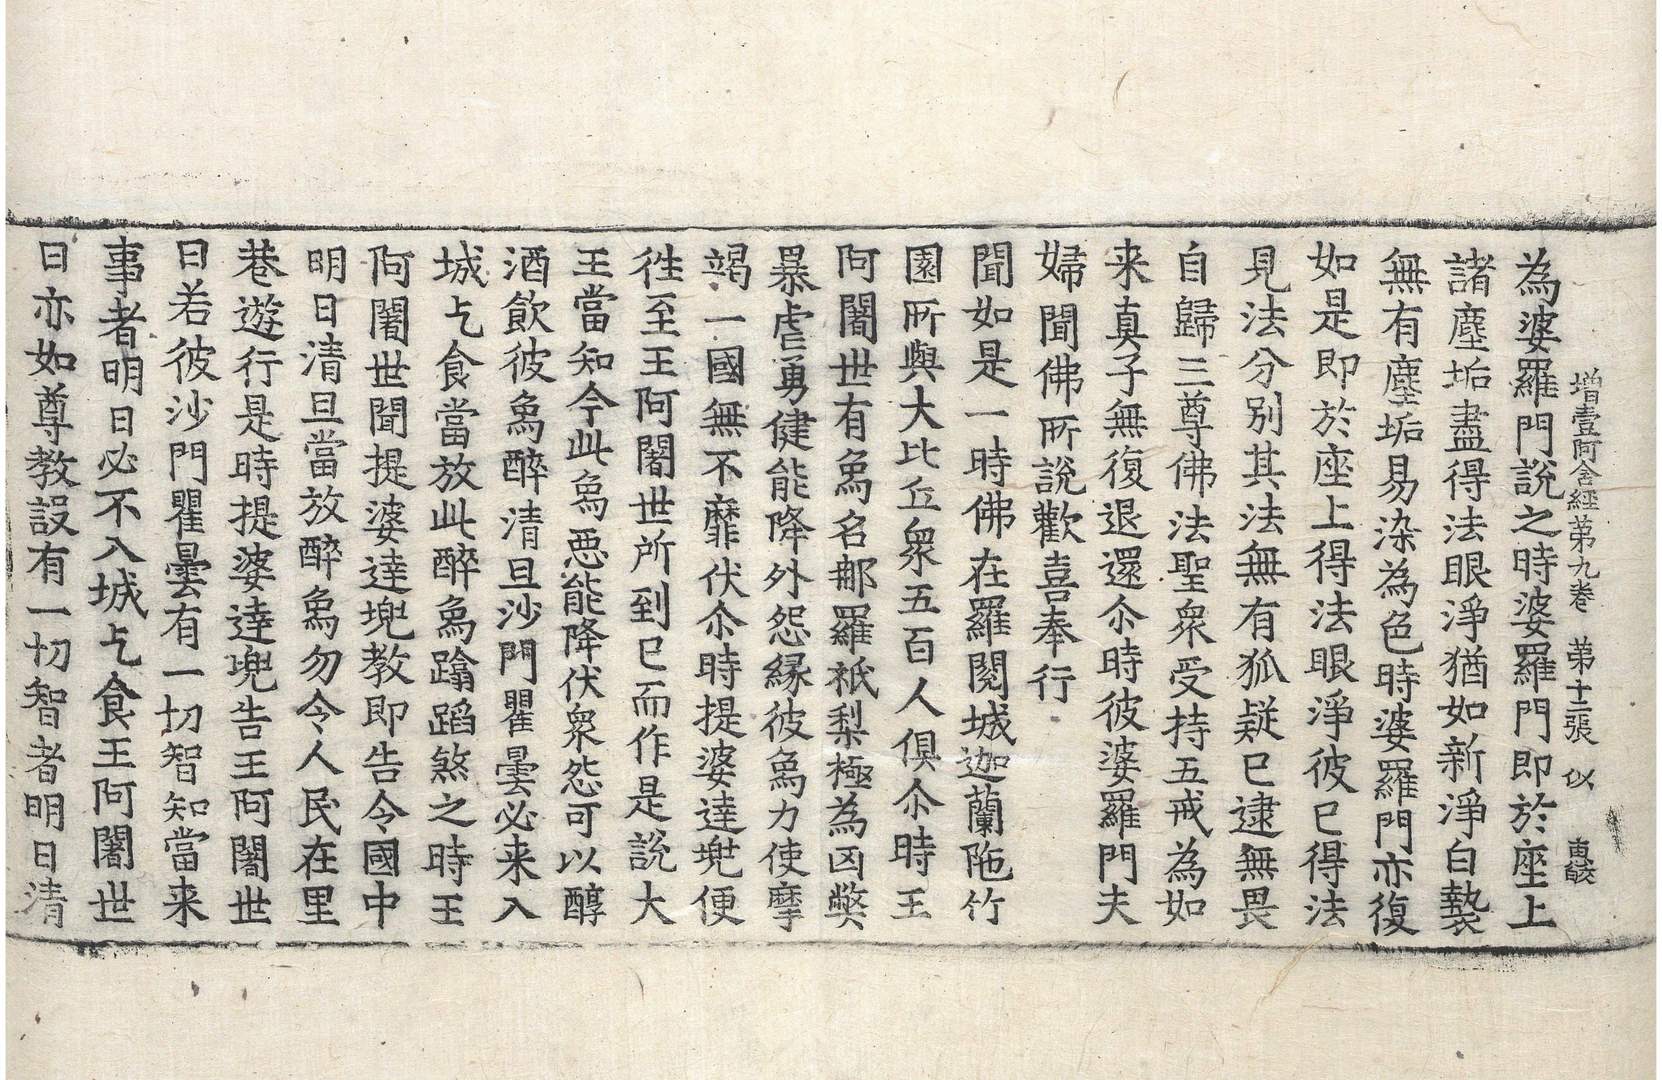 增壹阿含經第九卷　第十二張　似
為婆羅門說之時婆羅門即於座上
諸塵垢盡得法眼淨猶如新淨白㲲
無有塵垢易染為色時婆羅門亦復
如是即於座上得法眼淨彼已得法
見法分別其法無有狐疑已逮無畏
自歸三尊佛法聖衆受持五戒為如
来真子無復退還尒時彼婆羅門夫
婦聞佛所說歡喜奉行
聞如是一時佛在羅閱城迦蘭陁竹
園所與大比丘衆五百人俱尒時王
阿闍世有象名那羅祇梨極為凶弊
暴虐勇健能降外怨緣彼象力使摩
竭一國無不靡伏尒時提婆達兜便
往至王阿闍世所到已而作是說大
王當知今此象惡能降伏衆怨可以醇
酒飲彼象醉清旦沙門瞿曇必来入
城乞食當放此醉象蹹蹈煞之時王
阿闍世聞提婆達兜教即告令國中
明日清旦當放醉象勿令人民在里
巷遊行是時提婆達兜告王阿闍世
曰若彼沙門瞿曇有一切智知當来
事者明日必不入城乞食王阿闍世
曰亦如尊教設有一切智者明日清